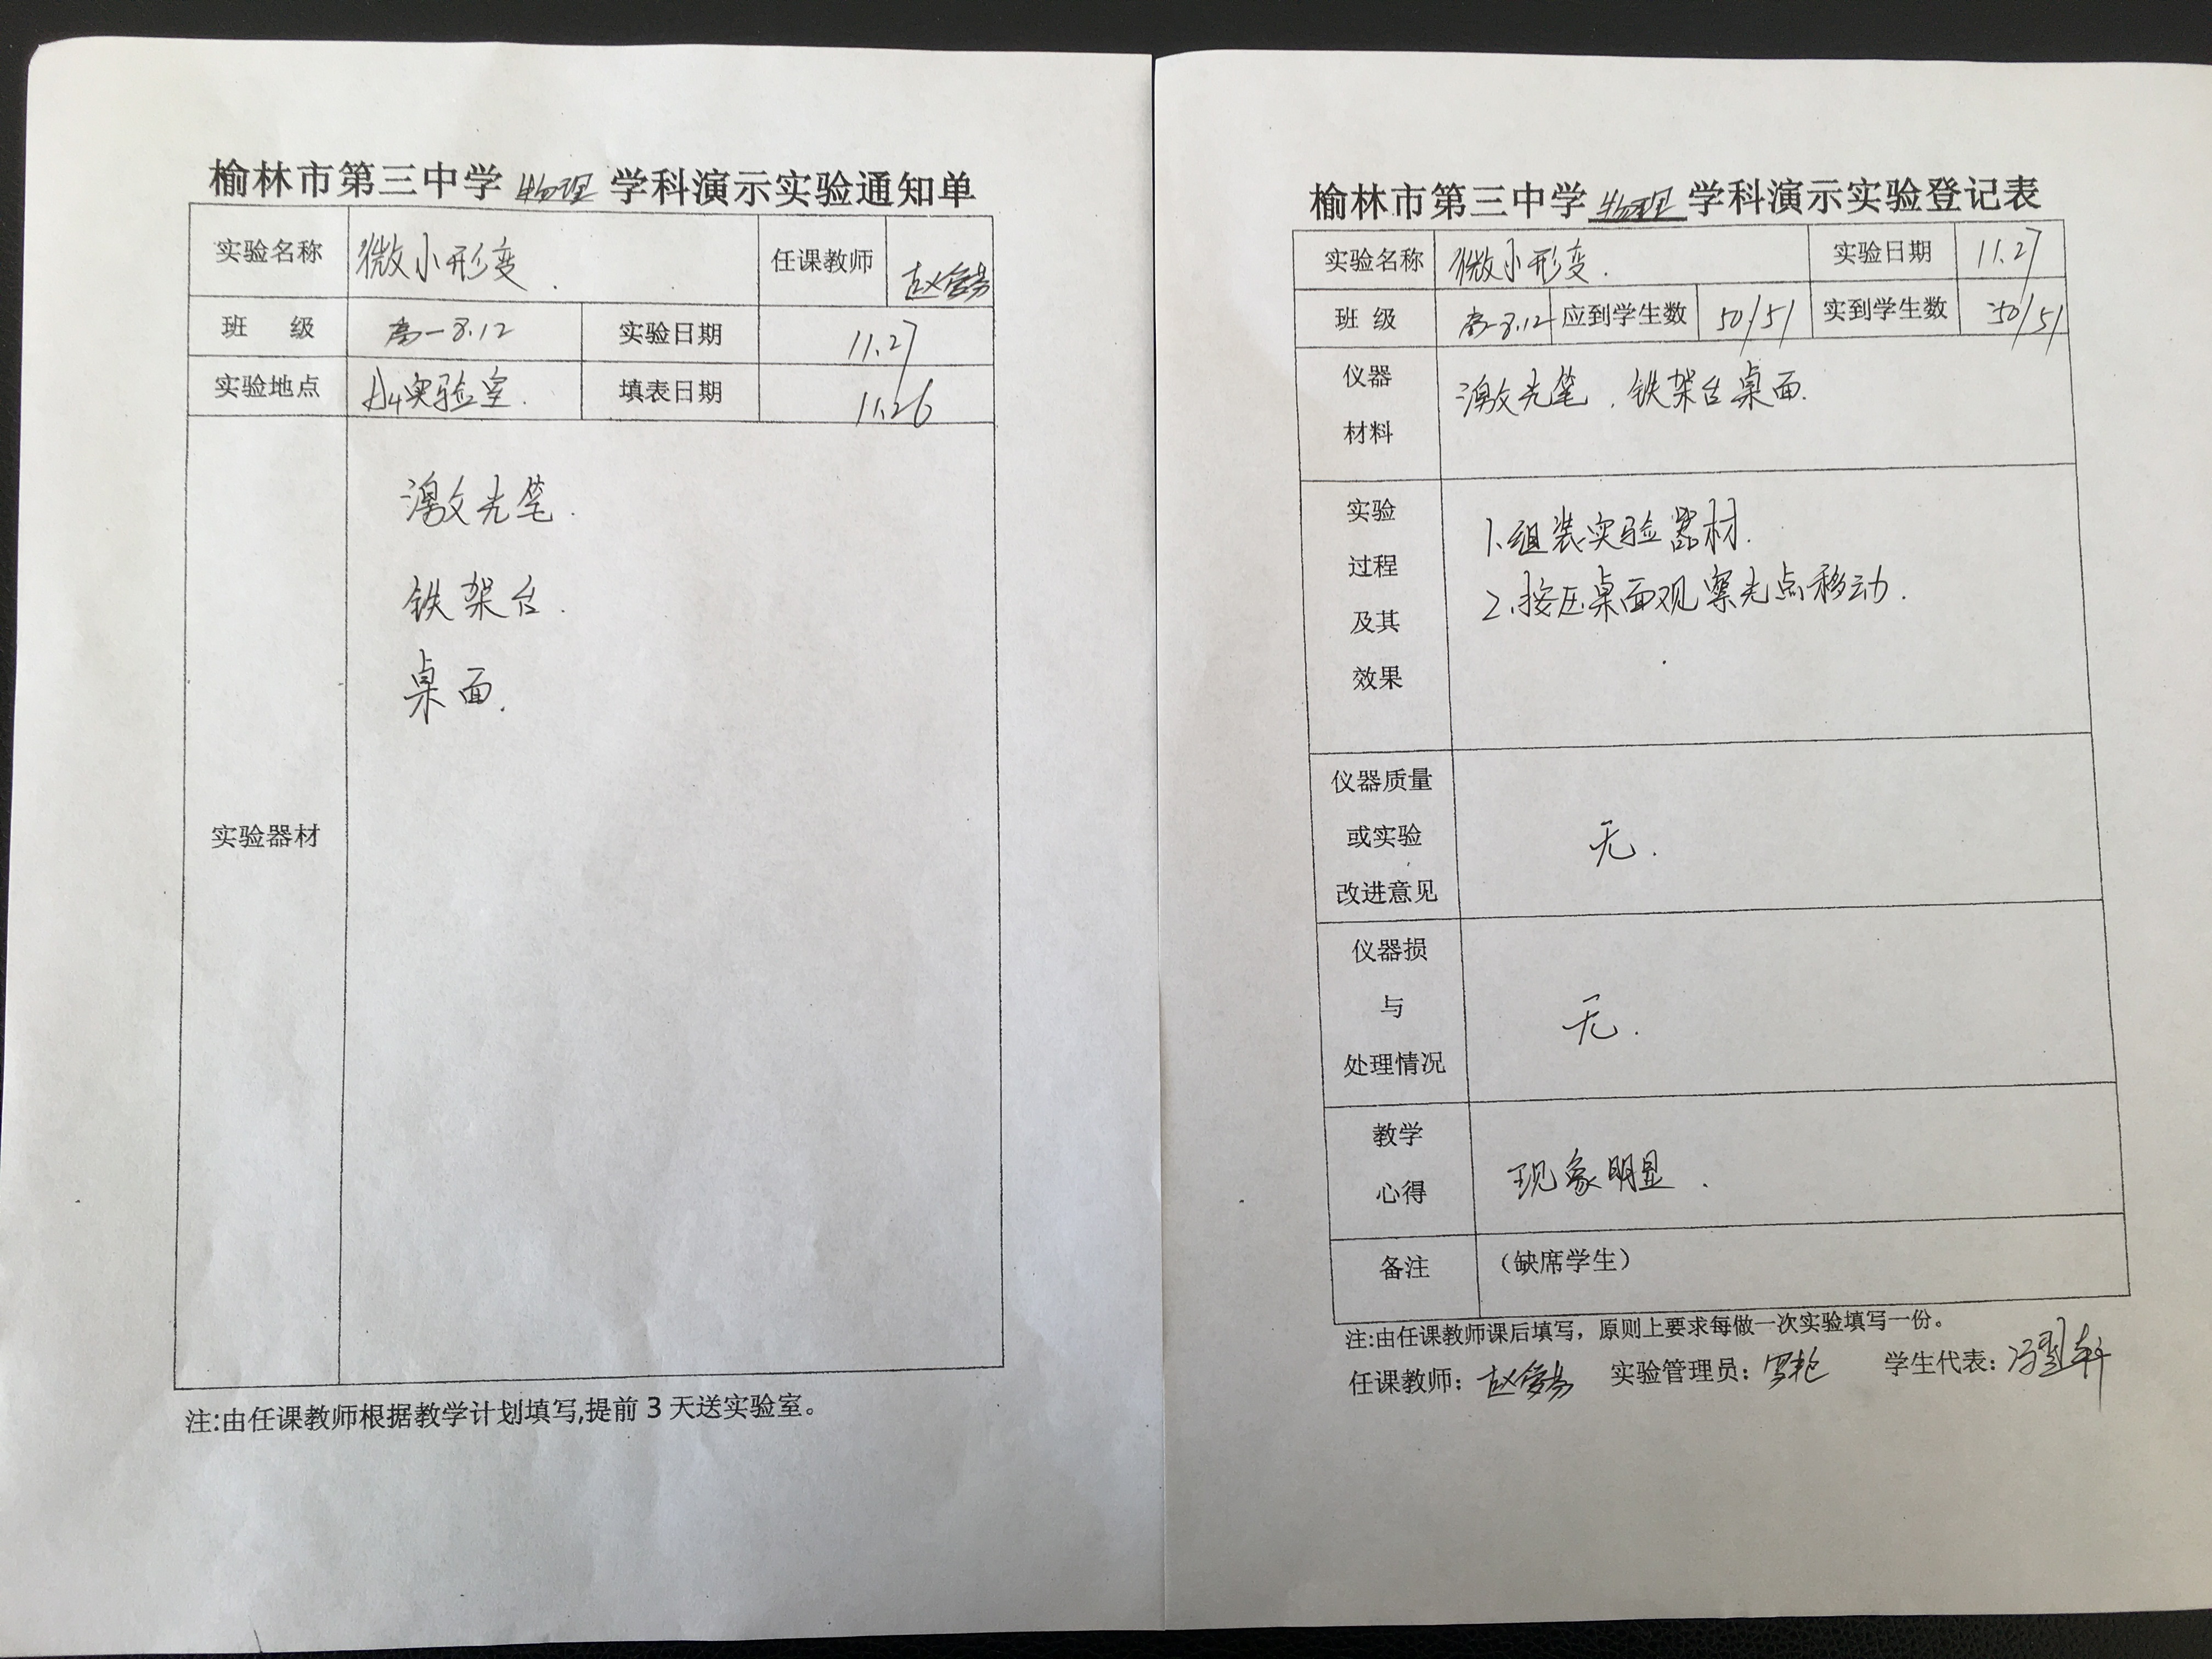 榆林市第三中学 物理 学科演示实验通知单
实验名称 微小形变. 任课教师
班 级 高一8.12 实验日期 11.27
实验地点 实验室. 填表日期 11.26
激光笔.
铁架台.
桌面.
实验器材
注:由任课教师根据教学计划填写,提前 3 天送实验室。
榆林市第三中学 物理 学科演示实验登记表
实验名称 微小形变. 实验日期 11.27
班 级 高一8.12 应到学生数 50/51 实到学生数 50/51
仪器
材料
激光笔.铁架台桌面.
实验
过程
及其
效果
1.组装实验器材.
2.按压桌面观察光点移动.
仪器质量
或实验
改进意见
无.
仪器损
与
处理情况
无.
教学
心得
现象明显.
备注 (缺席学生)
注:由任课教师课后填写，原则上要求每做一次实验填写一份。
任课教师: 实验管理员: 学生代表: